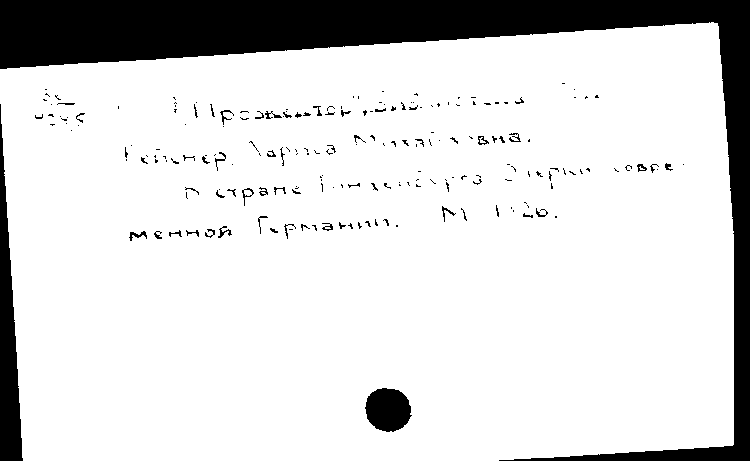 "Прожектор", библиотека
Рейснер, Лариса Михайловна.
В стране Гинденбурга Очерки совре-
менной Германии. М 1926.